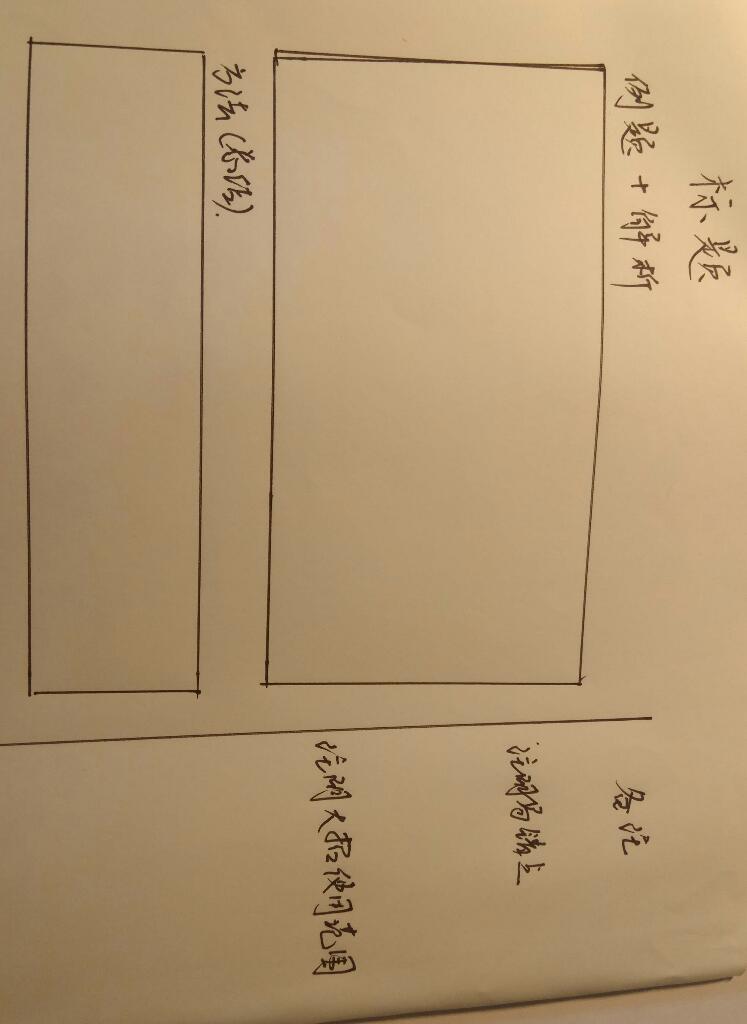 标题
例题+解析
方法(总结).
备注
注明易错点
注明大招使用范围